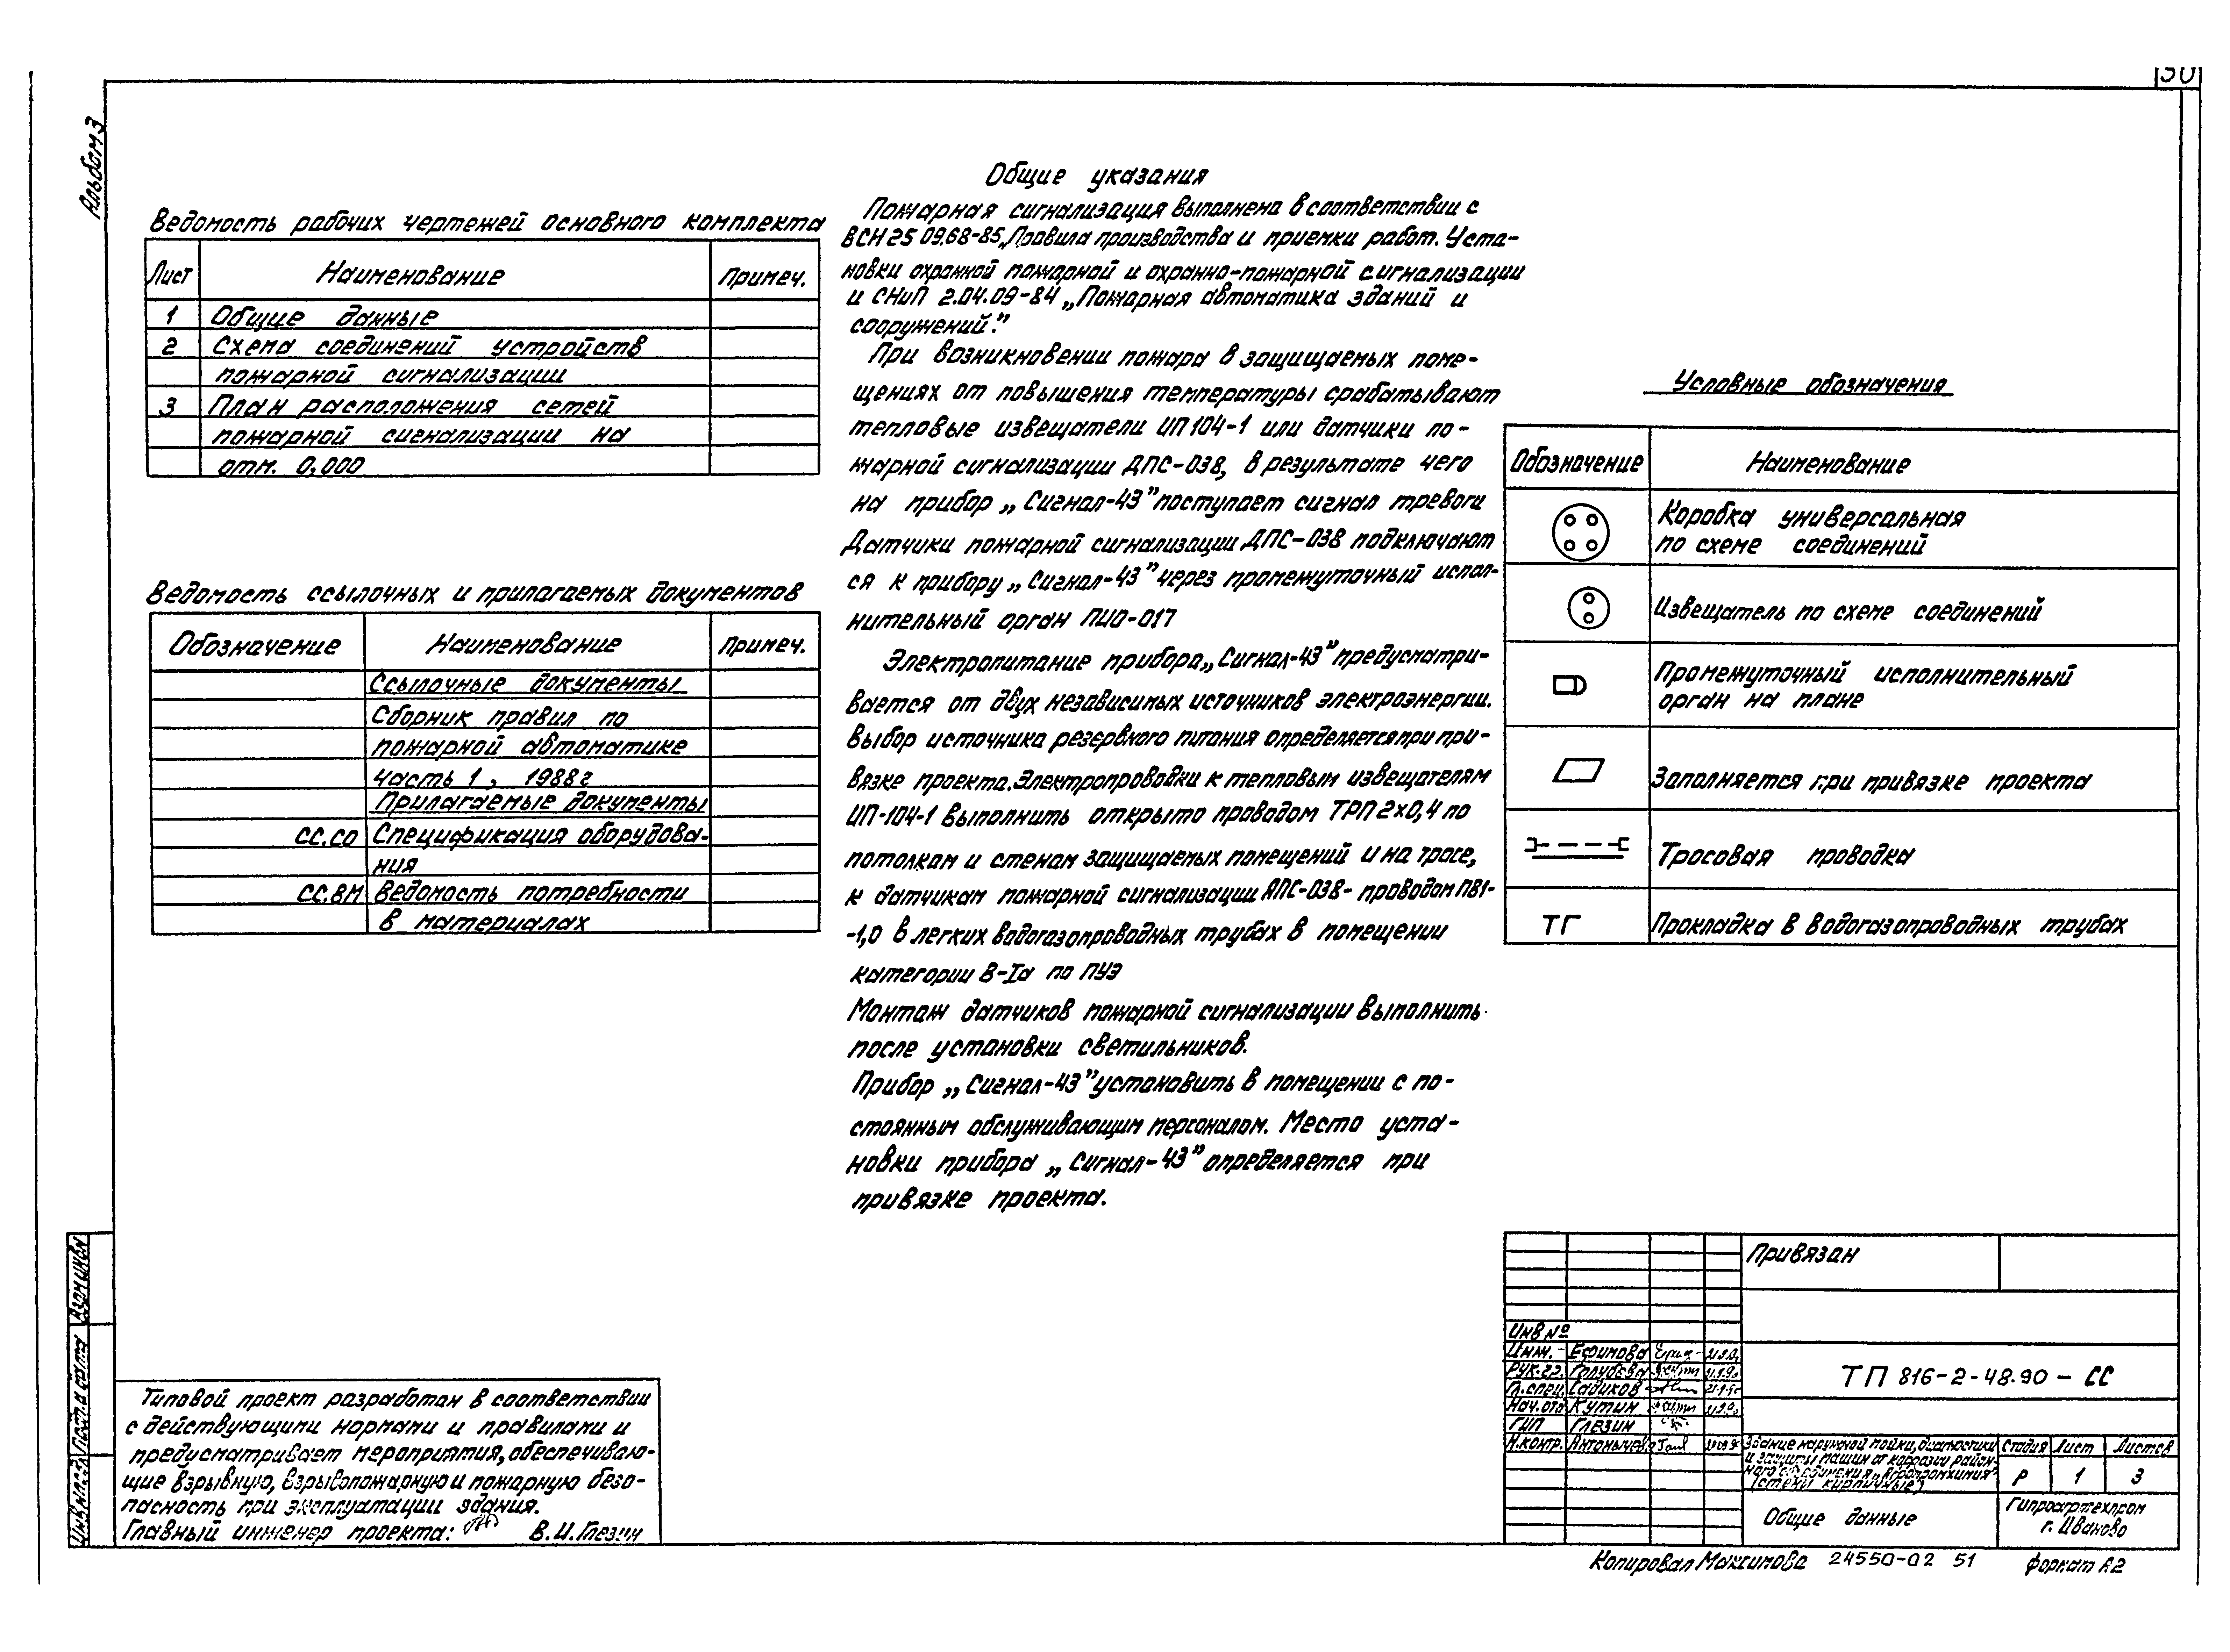 Альбом 3
Ведомость рабочих чертежей основного комплекта
Лист Наименование Примеч.
1 Общие данные
2 Схема соединений устройств
пожарной сигнализации
3 План расположения сетей
пожарной сигнализации на
отм. 0,000
Ведомость ссылочных и прилагаемых документов
Обозначение Наименование Примеч.
Ссылочные документы
Сборник правил по
пожарной автоматике
часть 1, 1988г
Прилагаемые документы
СС.СО Спецификация оборудова-
ния
СС.ВМ Ведомость потребности
в материалах
Общие указания
Пожарная сигнализация выполнена в соответствии с
ВСН 25 09.68-85 „Правила производства и приемки работ. Уста-
новки охранной пожарной и охранно-пожарной сигнализации
и СНиП 2.04.09-84 „Пожарная автоматика зданий и
сооружений."
При возникновении пожара в защищаемых поме-
щениях от повышения температуры срабатывают
тепловые извещатели ИП 104-1 или датчики по-
жарной сигнализации ДПС-038, в результате чего
на прибор „Сигнал-43" поступает сигнал тревоги
Датчики пожарной сигнализации ДПС-038 подключают
ся к прибору „Сигнал-43" через промежуточный испол-
нительный орган ПИО-017
Электропитание прибора „Сигнал-43" предусматри-
вается от двух независимых источников электроэнергии.
Выбор источника резервного питания определяется при при-
вязке проекта. Электропроводки к тепловым извещателям
ИП-104-1 выполнить открыто проводом ТРП 2х0,4 по
потолкам и стенам защищаемых помещений и на тросе,
к датчикам пожарной сигнализации ДПС-038- проводом ПВ1-
-1,0 в легких водогазопроводных трубах в помещении
категории В-Iа по ПУЭ
Монтаж датчиков пожарной сигнализации выполнить
после установки светильников.
Прибор „Сигнал-43" установить в помещении с по-
стоянным обслуживающим персоналом. Место уста-
новки прибора „Сигнал-43" определяется при
привязке проекта.
Условные обозначения
Обозначение Наименование
Коробка универсальная
по схеме соединений
Извещатель по схеме соединений
Промежуточный исполнительный
орган на плане
Заполняется при привязке проекта
Тросовая проводка
ТГ Прокладка в водогазопроводных трубах
Типовой проект разработан в соответствии
с действующими нормами и правилами и
предусматривает мероприятия, обеспечиваю-
щие взрывную, взрывопожарную и пожарную безо-
пасность при эксплуатации здания.
Главный инженер проекта: В.И.Глезин
Взам инв N
Подп и дата
Инв N подл
Привязан
Инв №
Инж. Ефимова
Рук.гр. Голубева
Гл.спец. Садиков
Нач.отд Кутин
ГИП Глезин
Н.контр. Антонычева
ТП 816-2-48.90 - СС
Здание наружной мойки, диагностики
и защиты машин от коррозии район-
ного объединения „Агропромхимия"
(стены кирпичные)
Стадия Лист Листов
Р 1 3
Общие данные
Гипроагротехпром
г. Иваново
Копировал Максимова 24550-02 51 формат А2